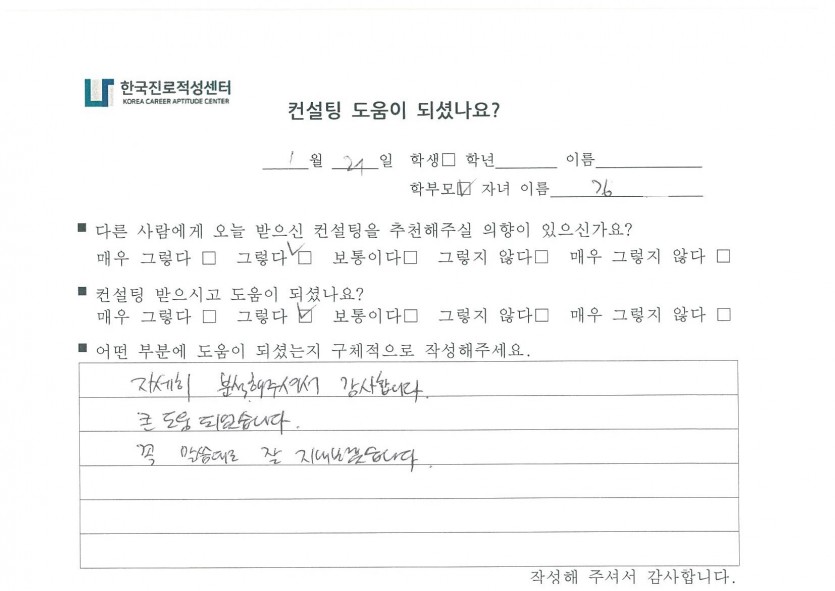 한국진로적성센터
KOREA CAREER APTITUDE CENTER
컨설팅 도움이 되셨나요?
1 월 21 일 학생□ 학년 이름
학부모☑ 자녀 이름
■ 다른 사람에게 오늘 받으신 컨설팅을 추천해주실 의향이 있으신가요?
매우 그렇다 □ 그렇다 ☑ 보통이다□ 그렇지 않다□ 매우 그렇지 않다 □
■ 컨설팅 받으시고 도움이 되셨나요?
매우 그렇다 □ 그렇다 ☑ 보통이다□ 그렇지 않다□ 매우 그렇지 않다 □
■ 어떤 부분에 도움이 되셨는지 구체적으로 작성해주세요.
자세히 분석해주셔서 감사합니다.
큰 도움 되었습니다.
꼭 말씀대로 잘 지내보겠습니다.
작성해 주셔서 감사합니다.